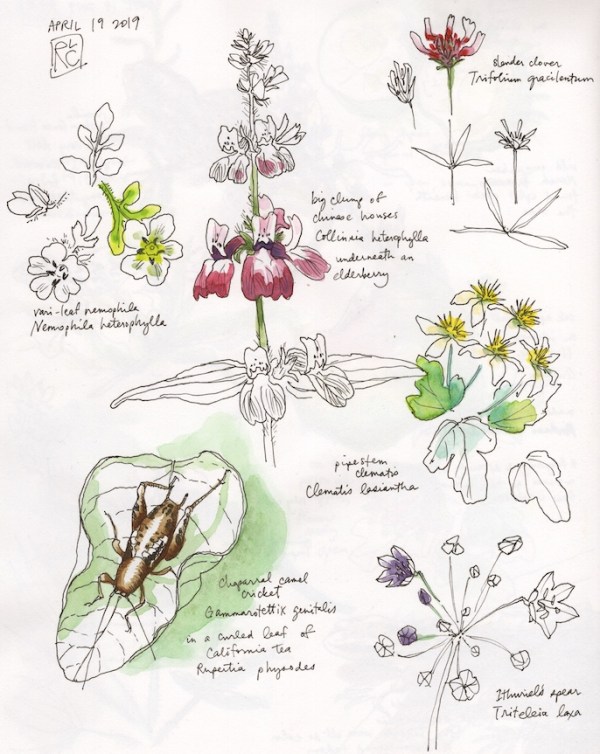 APRIL 19 2019
RLC
slender clover
Trifolium gracilentum
big clump of
chinese houses
Collinsia heterophylla
underneath an
elderberry
vari-leaf nemophila
Nemophila heterophylla
pipestem
clematis
Clematis lasiantha
chaparral camel
cricket
Gammarotettix genitalis
in a curled leaf of
California tea
Rupertia physodes
Ithuriel's spear
Triteleia laxa